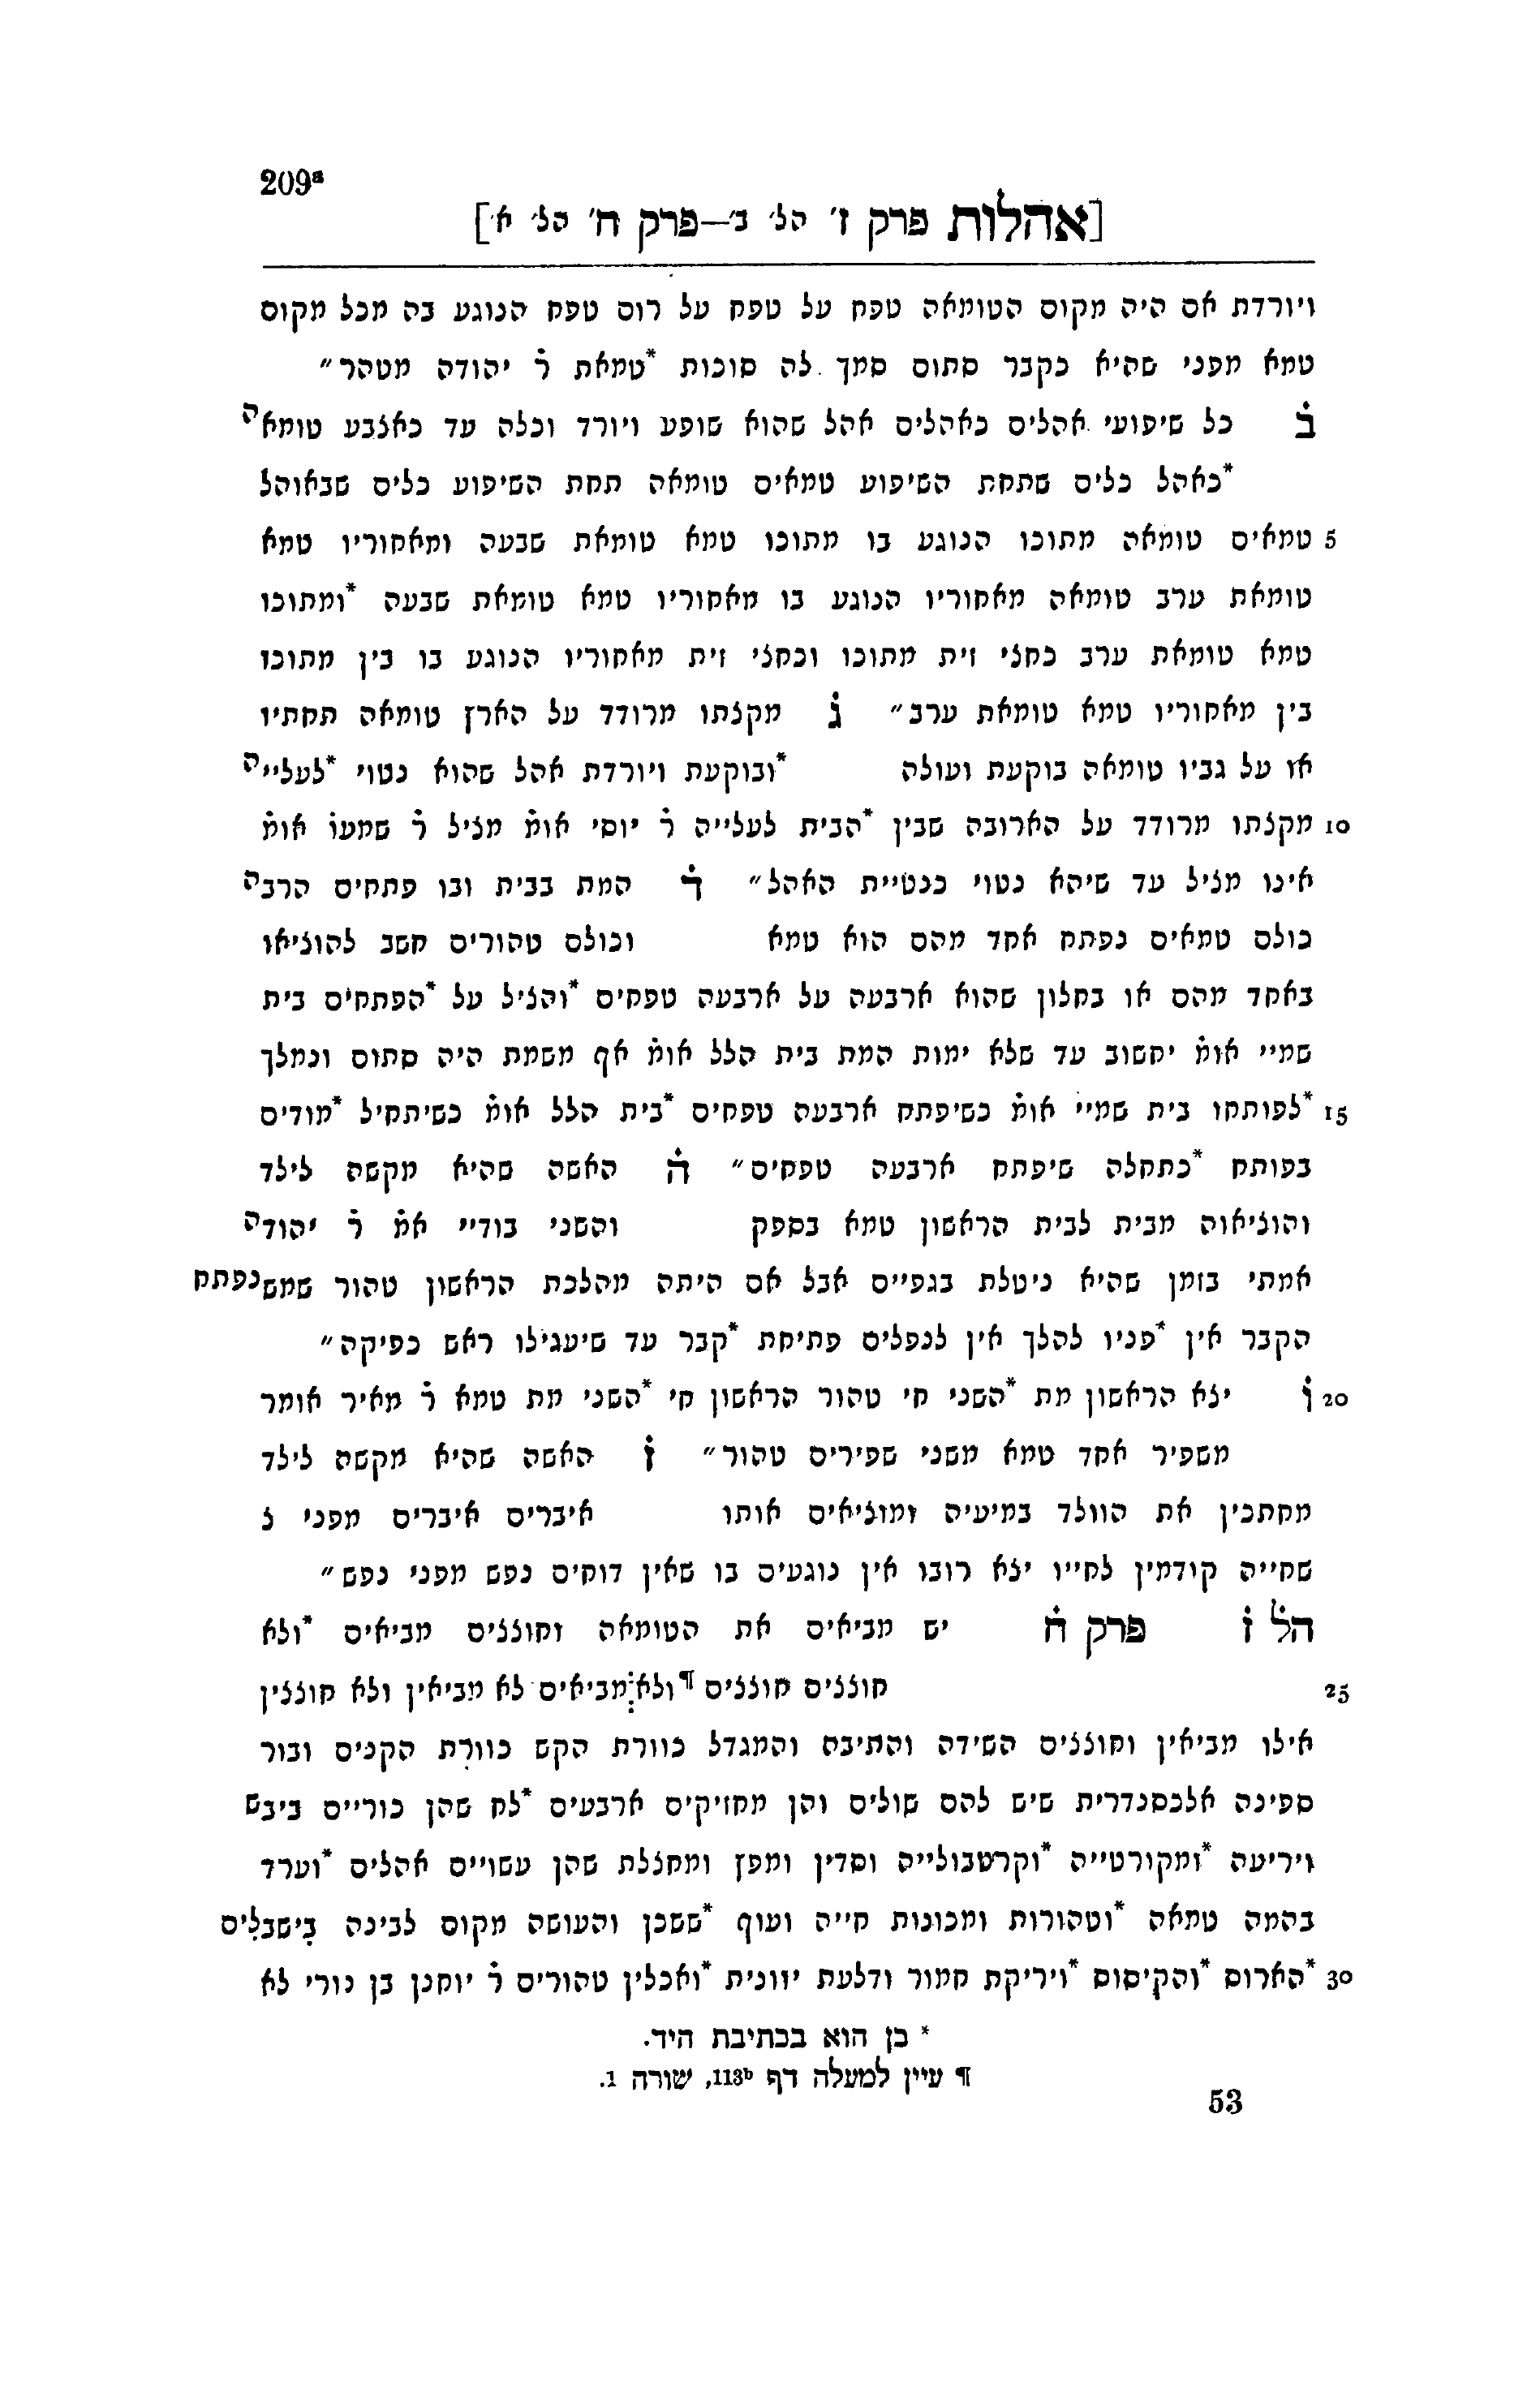 209ª
[אהלות פרק ז' הל' ב'—פרק ח' הל' א']
ויורדת אם היה מקום הטומאה טפח על טפח על רום טפח הנוגע בה מכל מקום
טמא מפני שהיא כקבר סתום סמך לה סוכות *טמאת ר̇ יהודה מטהר״
ב̇ כל שיפועי אהלים כאהלים אהל שהוא שופע ויורד וכלה עד כאצבע טומאה
*כאהל כלים שתחת השיפוע טמאים טומאה תחת השיפוע כלים שבאוהל
5 טמאים טומאה מתוכו הנוגע בו מתוכו טמא טומאת שבעה ומאחוריו טמא
טומאת ערב טומאה מאחוריו הנוגע בו מאחוריו טמא טומאת שבעה *ומתוכו
טמא טומאת ערב כחצי זית מתוכו וכחצי זית מאחוריו הנוגע בו בין מתוכו
בין מאחוריו טמא טומאת ערב״ ג̇ מקצתו מרודד על הארץ טומאה תחתיו
או על גביו טומאה בוקעת ועולה *ובוקעת ויורדת אהל שהוא נטוי *לעלייה
10 מקצתו מרודד על הארובה שבין *הבית לעלייה ר̇ יוסי אומ̇ מציל ר̇ שמעו̇ אומ̇
אינו מציל עד שיהא נטוי כנטיית האהל״ ד̇ המת בבית ובו פתחים הרבה
כולם טמאים נפתח אחד מהם הוא טמא וכולם טהורים חשב להוציאו
באחד מהם או בחלון שהוא ארבעה על ארבעה טפחים *והציל על *הפתחים בית
שמיי אומ̇ יחשוב עד שלא ימות המת בית הלל אומ̇ אף משמת היה סתום ונמלך
15 *לפותחו בית שמיי אומ̇ כשיפתח ארבעה טפחים *בית הלל אומ̇ כשיתחיל *מודים
בפותח *כתחלה שיפתח ארבעה טפחים״ ה̇ האשה שהיא מקשה לילד
והוציאוה מבית לבית הראשון טמא בספק והשני בודיי אמ̇ ר̇ יהודה
אמתי בזמן שהיא ניטלת בגפיים אבל אם היתה מהלכת הראשון טהור שמשנפתח
הקבר אין *פניו להלך אין לנפלים פתיחת *קבר עד שיעגילו ראש כפיקה״
20 ו̇ יצא הראשון מת *השני חי טהור הראשון חי *השני מת טמא ר̇ מאיר אומר
משפיר אחד טמא משני שפירים טהור״ ז̇ האשה שהיא מקשה לילד
מחתכין את הוולד במיעיה ומוציאים אותו איברים איברים מפני צ
שחייה קודמין לחייו יצא רובו אין נוגעים בו שאין דוחים נפש מפני נפש״
הל̇ ז̇ פרק ח̇ יש מביאים את הטומאה וחוצצים מביאים *ולא
25 חוצצים חוצצים ¶ולא מביאים לא מביאין ולא חוצצין
אילו מביאין וחוצצים השידה והתיבה והמגדל כוורת הקש כוורת הקנים ובור
ספינה אלכסנדרית שיש להם שולים והן מחזיקים ארבעים *לח שהן כוריים ביבש
ויריעה *ומקורטייה *וקרטבולייה וסדין ומפץ ומחצלת שהן עשויים אהלים *וערד
בהמה טמאה *וטהורות ומכונות חייה ועוף *ששכן והעושה מקום לבינה בישבלים
30 *הארוס *והקיסוס *ויריקת חמור ודלעת יוונית *ואכלין טהורים ר̇ יוחנן בן נורי לא
* כן הוא בכתיבת היד.
¶ עיין למעלה דף 113ᵇ, שורה 1.
53